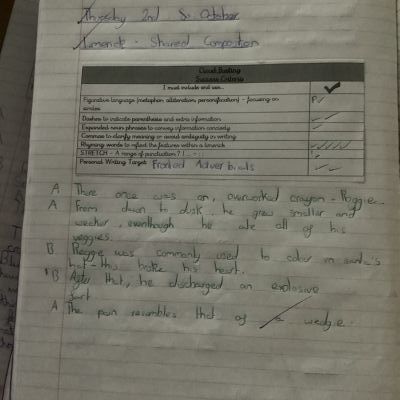 Thursday 2nd October
Limerick - Shared Composition
Cloud Busting
Success Criteria
I must include and use...
Figurative language (metaphor, alliteration, personification) - focusing on similes
Dashes to indicate parenthesis and extra information
Expanded noun phrases to convey information concisely
Commas to clarify meaning or avoid ambiguity in writing
Rhyming words to reflect the features within a limerick
STRETCH - A range of punctuation ? ! ... - ;
Personal Writing Target: Fronted Adverbials
A There once was an, overworked crayon - Reggie.
A From dawn to dusk, he grew smaller and
weaker, eventhough he ate all of his
veggies.
B Reggie was commonly used to colour in santa's
hat - this broke his heart.
B After that, he discharged an explosive
fart
A The pain resembles that of a wedgie.